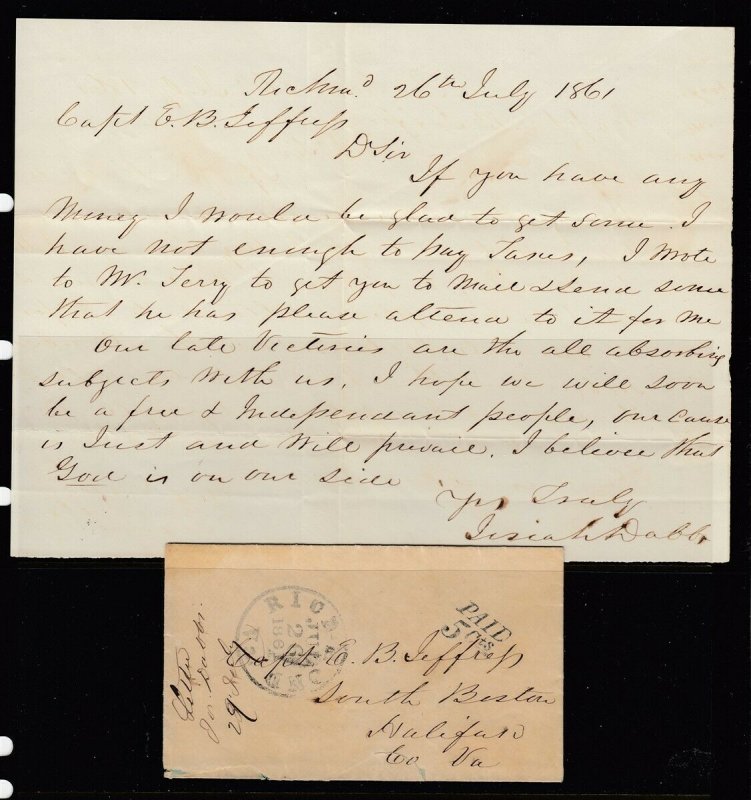 Richm.d 26th July 1861
Capt E.B. Jeffress
D Sir
If you have any
Money I would be glad to get some. I
have not enough to pay Taxes, I wrote
to Mr. Terry to get you to Mail & send some
that he has please attend to it for me
Our late Victories are the all absorbing
subjects with us. I hope we will soon
be a free & Independant people, our cause
is Just and will prevail. I believe that
God is on our side
Yrs Truly
Josiah Dabbs
RICHMOND VA.
JUL
26
1861
PAID
5 Cts
Capt E. B. Jeffress
South Boston
Halifax
Co Va
Letter
Jos Dabbs.
29 July